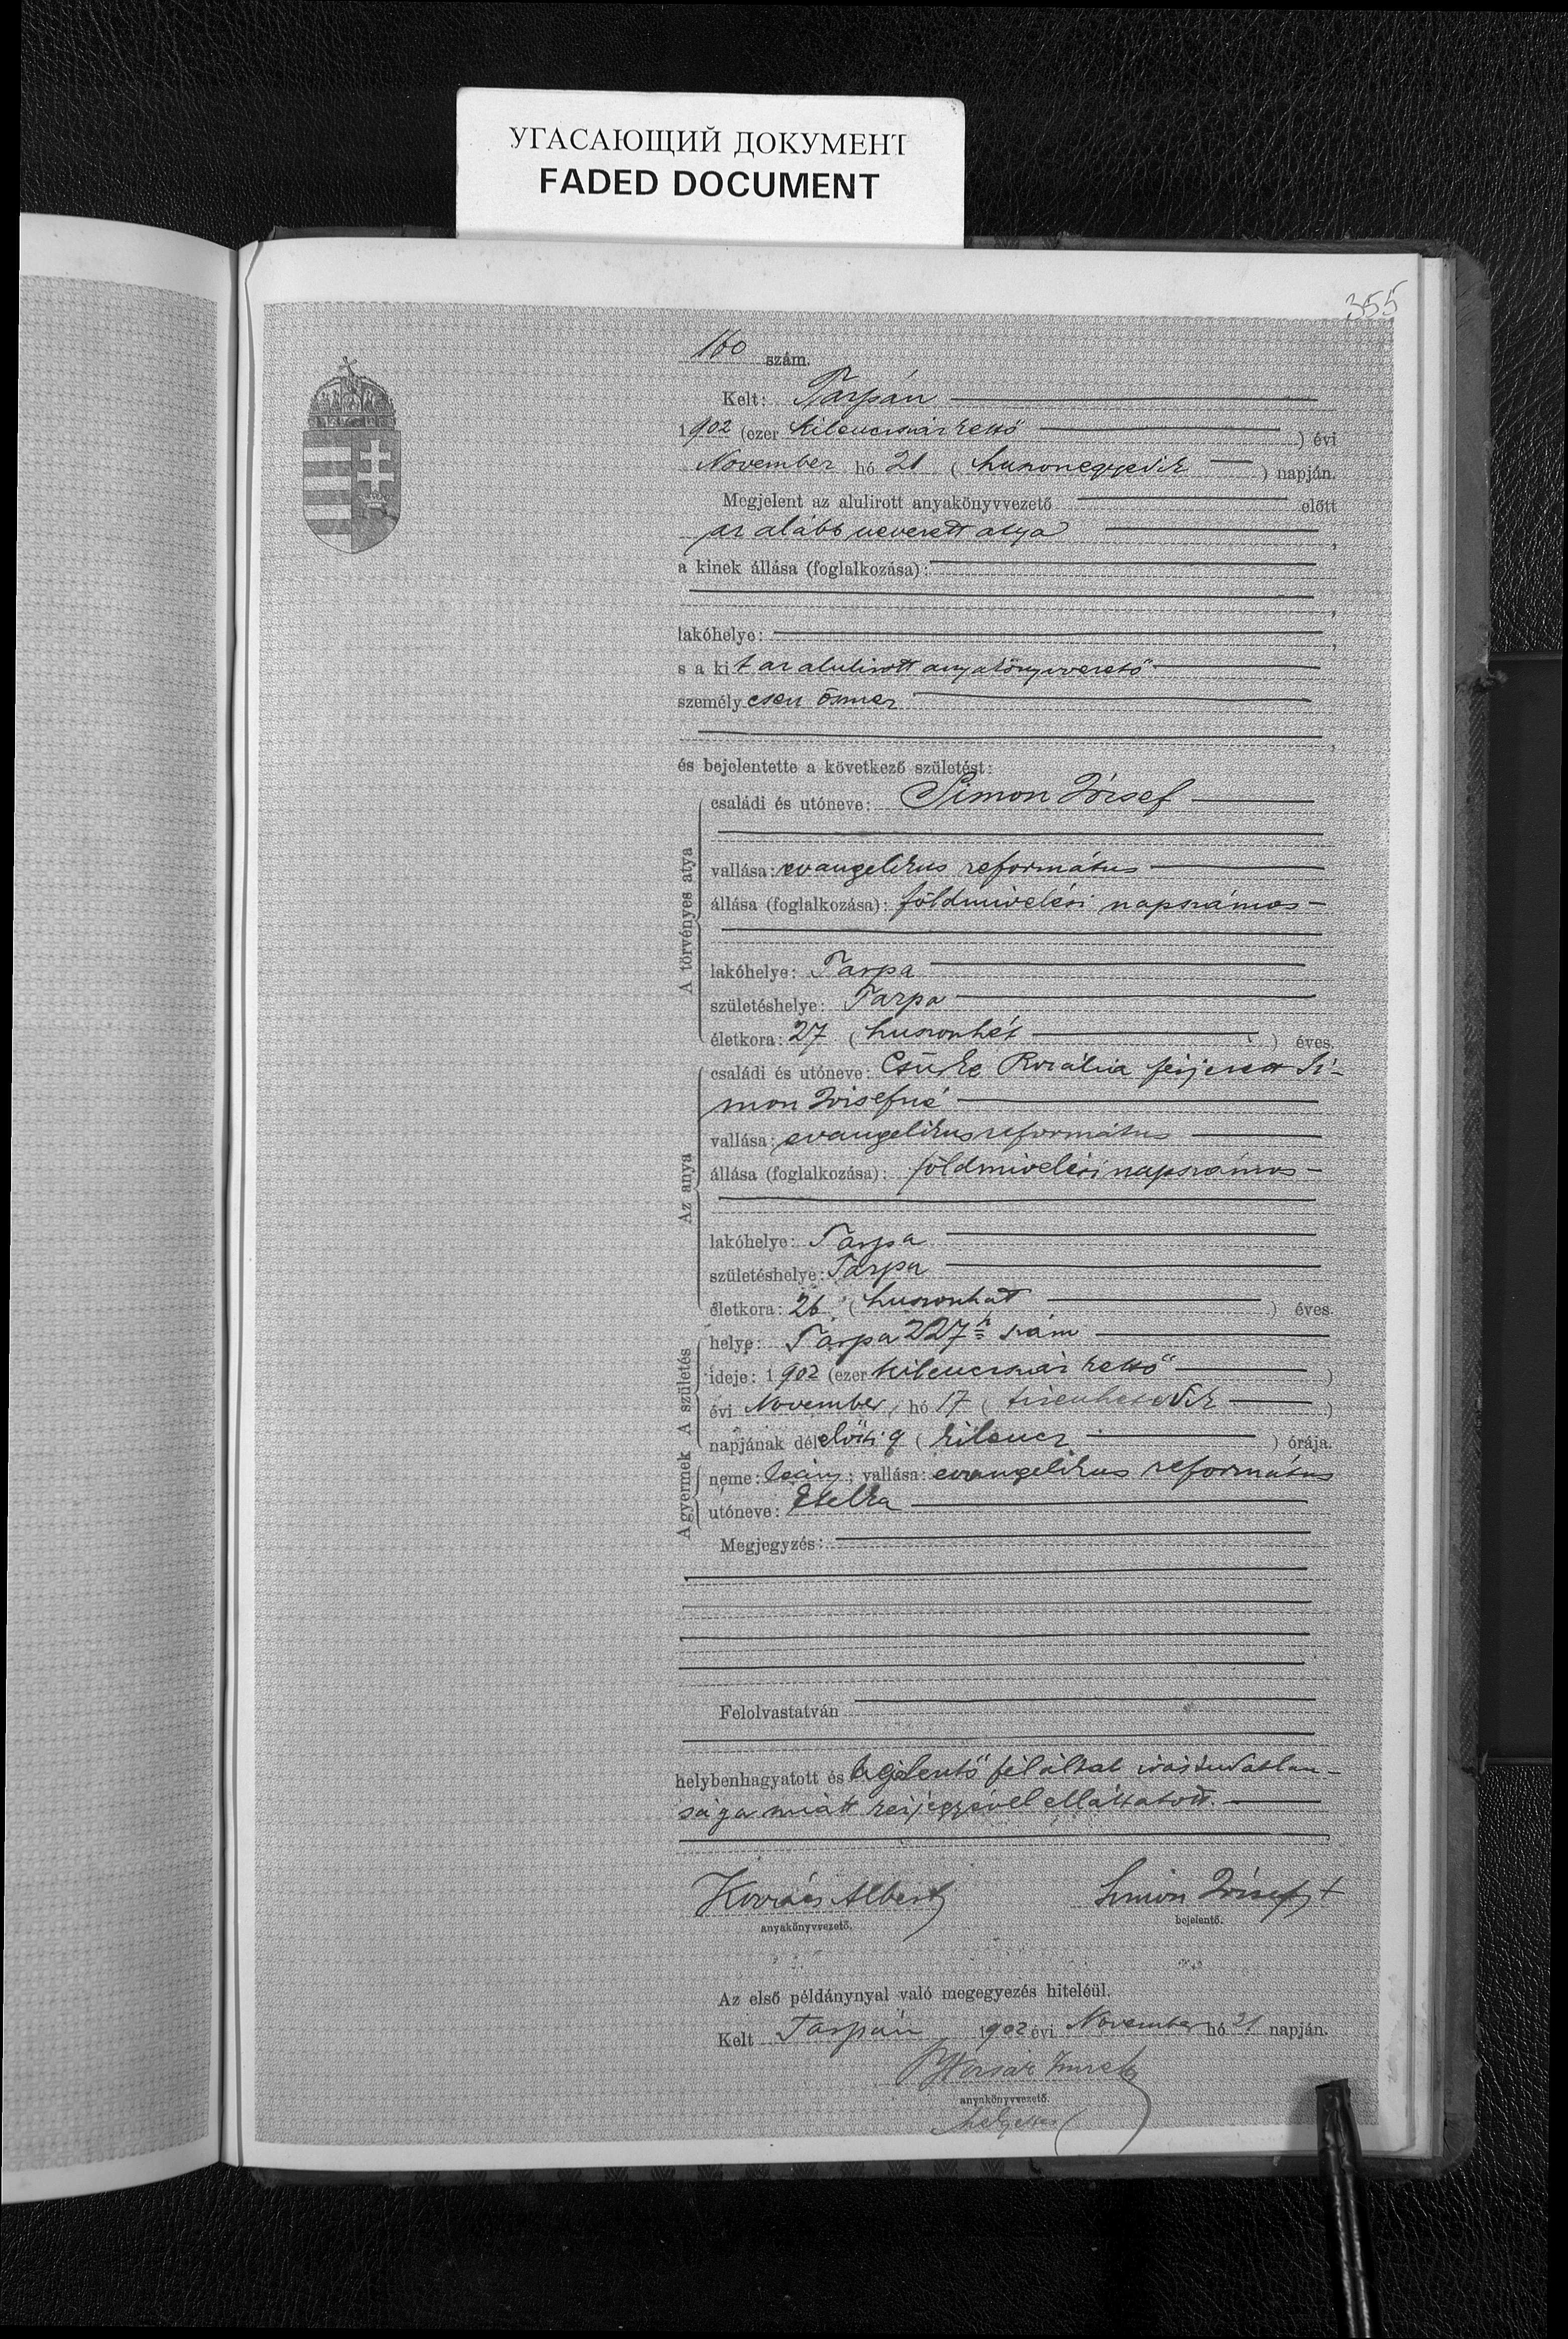 УГАСАЮЩИЙ ДОКУМЕНТ
FADED DOCUMENT
355
160 szám.
Kelt: Tarpán
1902 (ezer kilenczszázkettő) évi
November hó 21 (huszonegyedik) napján.
Megjelent az alulirott anyakönyvvezető előtt
az alább nevezett atya,
a kinek állása (foglalkozása):
,
lakóhelye: ,
s a kit az alulirott anyakönyvvezető
személyesen ösmer
,
és bejelentette a következő születést:
A törvényes atya
családi és utóneve: Simon József
vallása: evangelikus református
állása (foglalkozása): földmivelési napszámos
lakóhelye: Tarpa
születéshelye: Tarpa
életkora: 27 (huszonhét) éves.
Az anya
családi és utóneve: Csüke Rozália férjezett Si-
mon Józsefné
vallása: evangelikus református
állása (foglalkozása): földmivelési napszámos
lakóhelye: Tarpa
születéshelye: Tarpa
életkora: 26 (huszonhat) éves.
A születés
helye: Tarpa 227ik szám
ideje: 1902 (ezer kilenczszáz kettő)
évi November hó 17 (tizenhetedik)
napjának délelőtti 9 (kilencz) órája.
A gyermek
neme: leány; vallása: evangelikus református
utóneve: Etelka
Megjegyzés:
Felolvastatván
helybenhagyatott és bejelentő fél által irástudatlan-
sága miatt kézjegyével elláttatott.
Kovács Albert Simon József +
anyakönyvvezető. bejelentő.
Az első példánynyal való megegyezés hiteléül.
Kelt Tarpán 1902 évi November hó 21 napján.
Imre
anyakönyvvezető.
helyettes